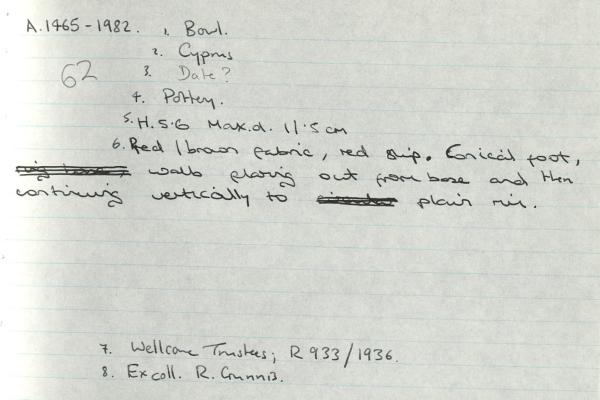 A.1465-1982. 1. Bowl.
2. Cyprus
62
3. Date?
4. Pottery.
5. H.5.6 Max.d. 11.5cm
6. Red/brown fabric, red slip. Conical foot,
walls flaring out from base and then
continuing vertically to plain rim.
7. Wellcome Trustees; R 933/1936.
8. Ex coll. R. Gunnis.